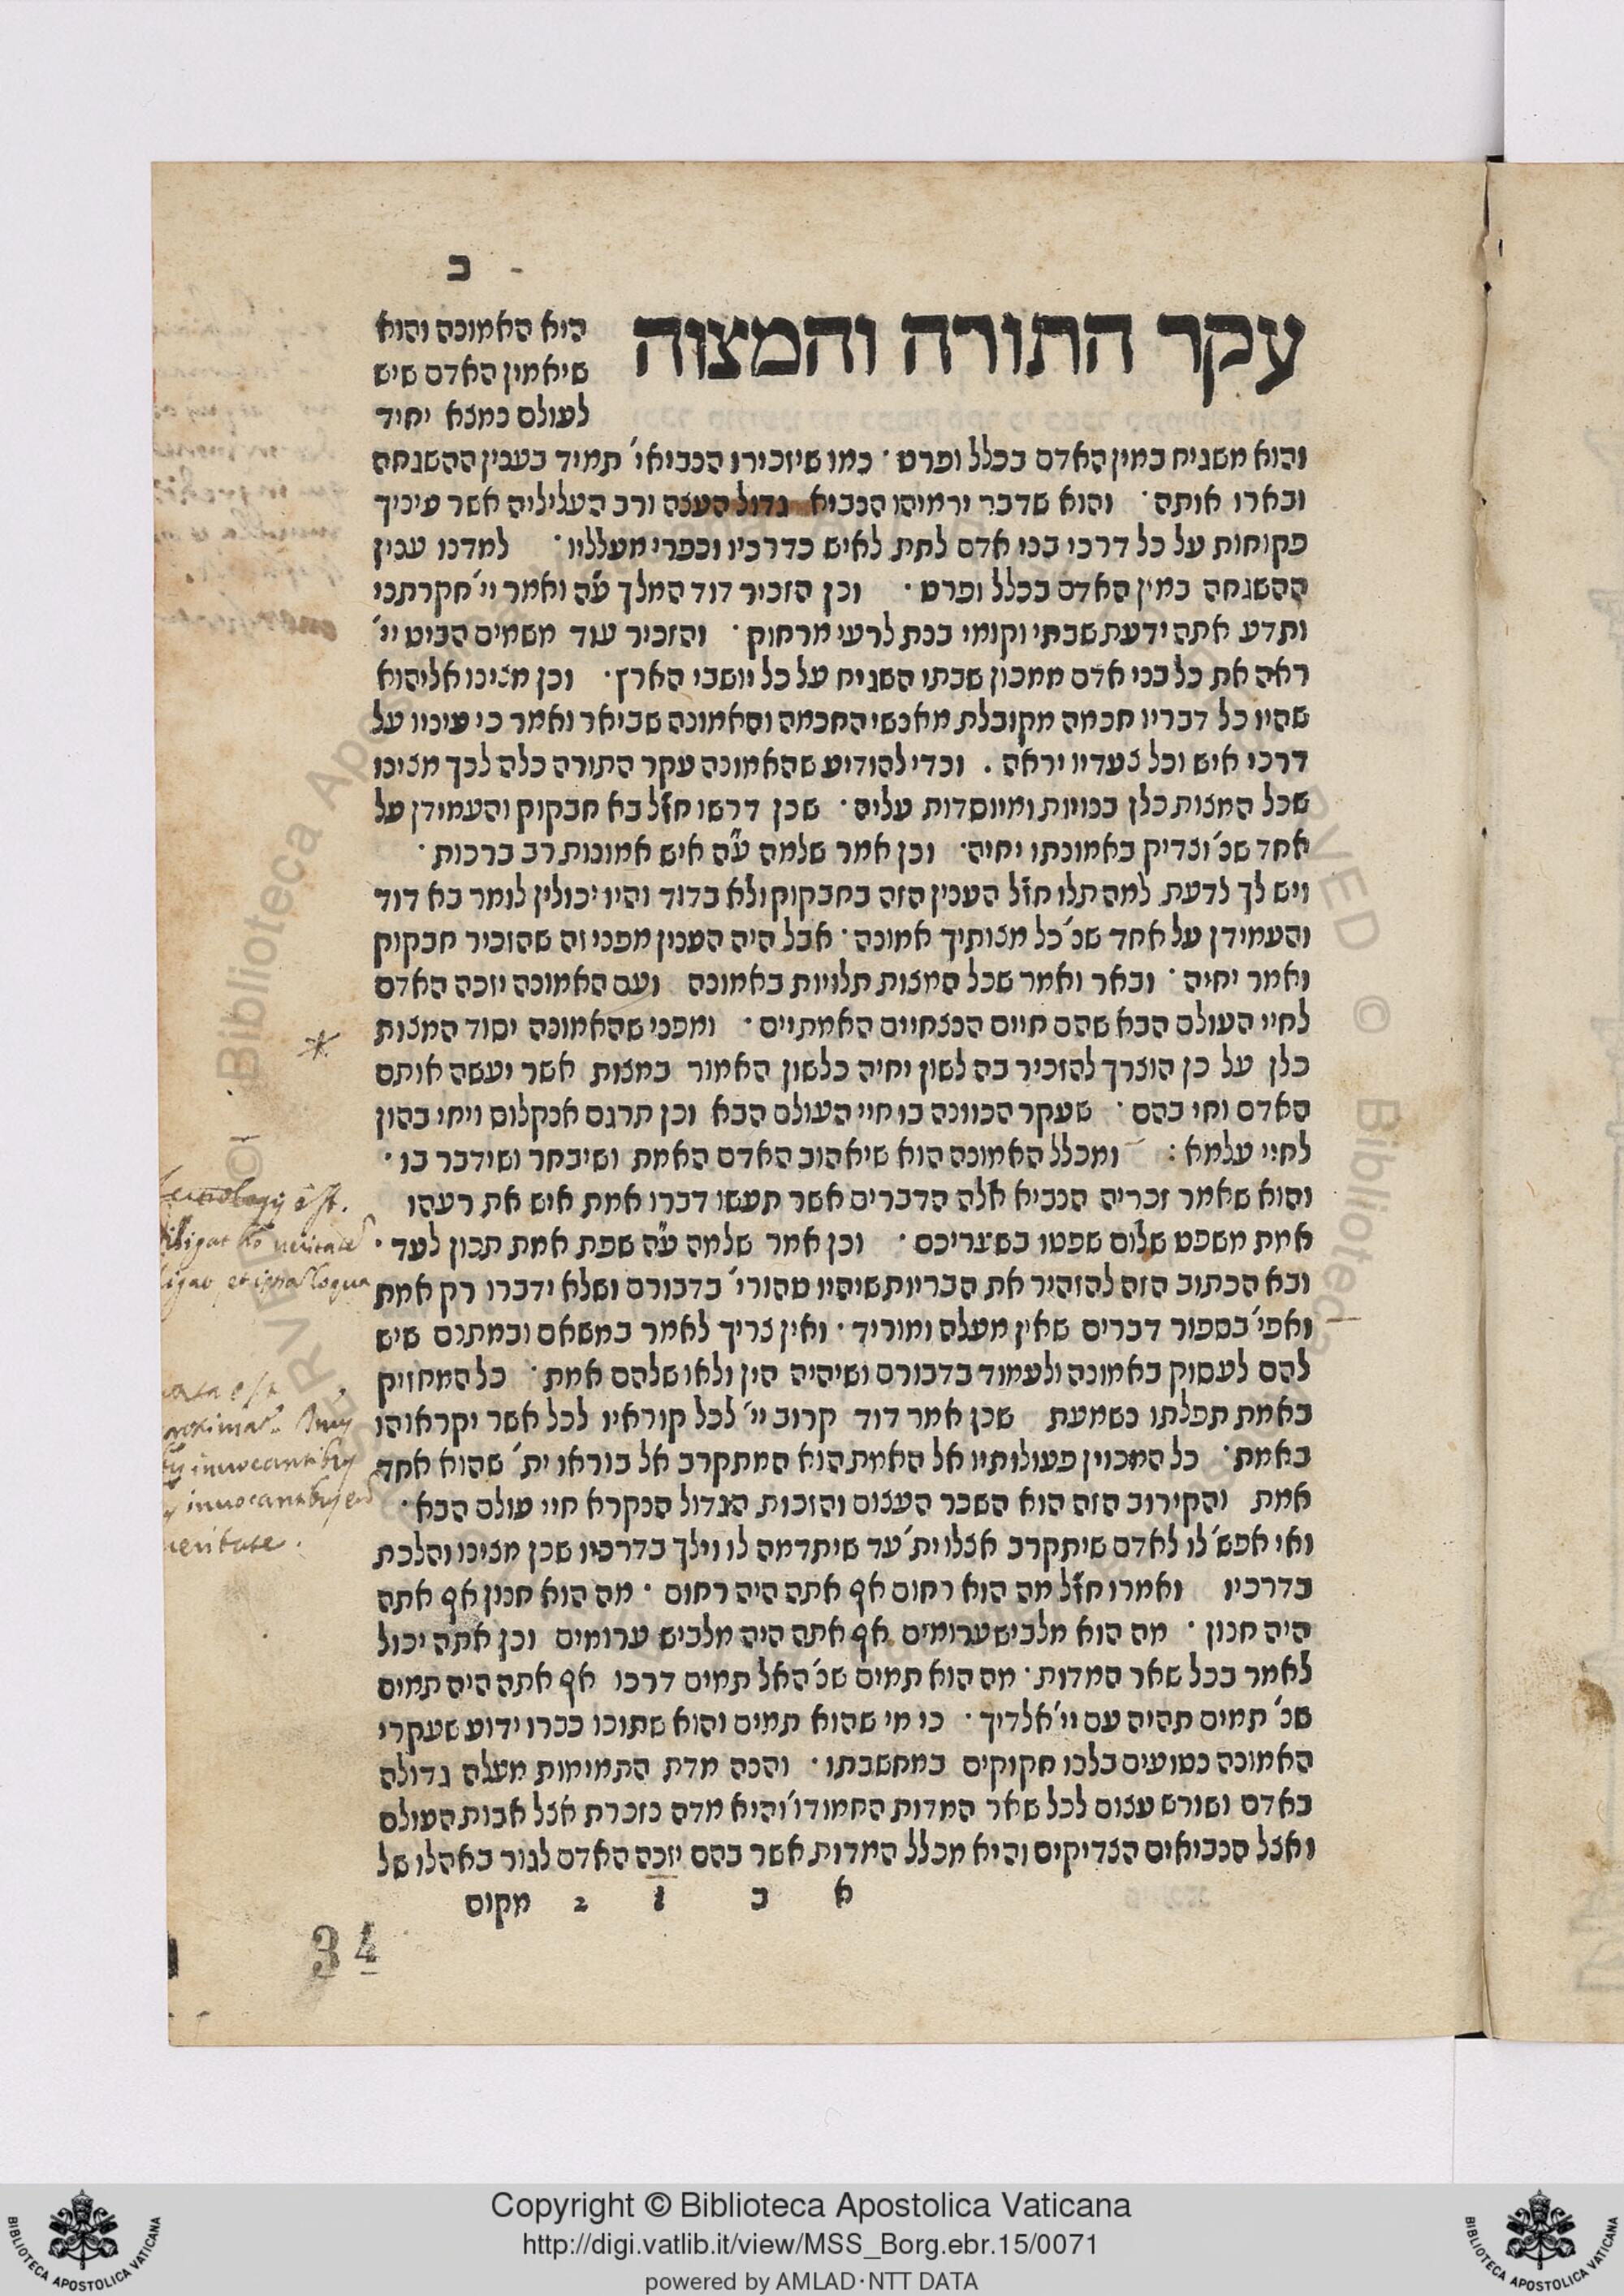 ב
עקר התורה והמצוה
היא האמונה והוא
שיאמין האדם שיש
לעולם נמצא יחיד
והוא משגיח במין האדם בכלל ופרט · כמו שיזכירו הנביאי׳ תמיד בענין ההשגחה
ובארו אותה · והוא שדבר ירמיהו הנביא גדול העצה ורב העליליה אשר עיניך
פקוחות על כל דרכי בני אדם לתת לאיש כדרכיו וכפרי מעלליו · למדנו ענין
ההשגחה במין האדם בכלל ופרט · וכן הזכיר דוד המלך ע״ה ואמר יי׳ חקרתני
ותדע אתה ידעת שבתי וקומי בנת לרעי מרחוק · והזכיר עוד משמים הביט יי׳
ראה את כל בני אדם ממכון שבתו השגיח על כל יושבי הארץ · וכן מצינו אליהוא
שהיו כל דבריו חכמה מקובלת מאנשי החכמה והאמונה שביאר ואמר כי עיניו על
דרכי איש וכל צעדיו יראה . וכדי להודיע שהאמונה עקר התורה כלה לכך מצינו
שכל המצות כלן בנויות ומיוסדות עליה · שכן דרשו חז״ל בא חבקוק והעמידן על
אחד שנ׳ וצדיק באמונתו יחיה · וכן אמר שלמה ע״ה איש אמונות רב ברכות ·
ויש לך לדעת למה תלו חז״ל הענין הזה בחבקוק ולא בדוד והיו יכולין לומר בא דוד
והעמידן על אחד שנ׳ כל מצותיך אמונה · אבל היה הענין מפני זה שהזכיר חבקוק
ואמר יחיה · ובאר ואמר שכל המצות תלויות באמונה ועם האמונה יזכה האדם
לחיי העולם הבא שהם חיים הנצחיים האמתיים · ומפני שהאמונה יסוד המצות
כלן על כן הוצרך להזכיר בה לשון יחיה כלשון האמור במצות אשר יעשה אותם
האדם וחי בהם · שעקר הכוונה בו חיי העולם הבא וכן תרגם אנקלוס ויחי בהון
לחיי עלמא : ומכלל האמונה הוא שיאהוב האדם האמת ושיבחר ושידבר בו ·
והוא שאמר זכריה הנביא אלה הדברים אשר תעשו דברו אמת איש את רעהו
אמת משפט שלום שפטו בשעריכם · וכן אמר שלמה ע״ה שפת אמת תכון לעד ·
ובא הכתוב הזה להזהיר את הבריות שיהיו טהורי׳ בדבורם ושלא ידברו רק אמת
ואפי׳ בספור דברים שאין מעלה ומוריד · ואין צריך לאמר במשאם ובמתנם שיש
להם לעסוק באמונה ולעמוד בדבורם ושיהיה הין ולאו שלהם אמת · כל המחזיק
באמת תפלתו נשמעת שכן אמר דוד קרוב יי׳ לכל קוראיו לכל אשר יקראוהו
באמת · כל המכוין פעולותיו אל האמת הוא המתקרב אל בוראו ית׳ שהוא אחד
אמת והקירוב הזה הוא השכר העצום והזכות הגדול הנקרא חיי עולם הבא ·
ואי אפש׳ לו לאדם שיתקרב אצלו ית׳ עד שיתדמה לו וילך בדרכיו שכן מצינו והלכת
בדרכיו ואמרו חז״ל מה הוא רחום אף אתה היה רחום · מה הוא חנון אף אתה
היה חנון · מה הוא מלביש ערומים אף אתה היה מלביש ערומים וכן אתה יכול
לאמר בכל שאר המדות · מה הוא תמים שנ׳ האל תמים דרכו אף אתה היה תמים
שנ׳ תמים תהיה עם יי׳ אלדיך · כי מי שהוא תמים והוא שתוכו כברו ידוע שעקרי
האמונה נטועים בלבו חקוקים במחשבתו · והנה מדת התמימות מעלה גדולה
באדם ושורש עצום לכל שאר המדות החמודו׳ והיא מדה נזכרת אצל אבות העולם
ואצל הנביאים הצדיקים והיא מכלל המדות אשר בהם יזכה האדם לגור באהלו של
א ב 1 2 מקום
*
est.
veritate
et
invocantibus
invocantibus
veritate.
34
Copyright © Biblioteca Apostolica Vaticana
http://digi.vatlib.it/view/MSS_Borg.ebr.15/0071
powered by AMLAD·NTT DATA
BIBLIOTECA APOSTOLICA VATICANA
BIBLIOTECA APOSTOLICA VATICANA